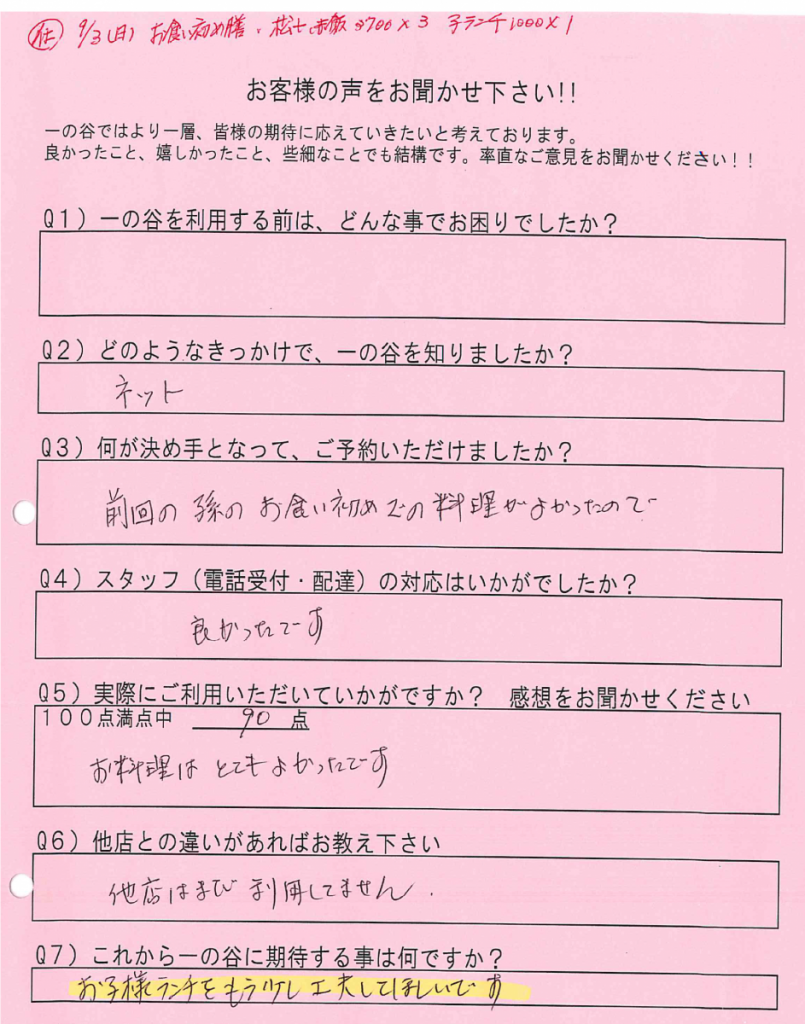 9/3(日) お食い初め膳・松 赤飯 3700×3 子ランチ1000×1
お客様の声をお聞かせ下さい!!
一の谷ではより一層、皆様の期待に応えていきたいと考えております。
良かったこと、嬉しかったこと、些細なことでも結構です。率直なご意見をお聞かせください！！
Q1）一の谷を利用する前は、どんな事でお困りでしたか？
Q2）どのようなきっかけで、一の谷を知りましたか？
ネット
Q3）何が決め手となって、ご予約いただけましたか？
前回の孫のお食い初めでの料理がよかったので
Q4）スタッフ（電話受付・配達）の対応はいかがでしたか？
良かったです
Q5）実際にご利用いただいていかがですか？　感想をお聞かせください
100点満点中　90　点
お料理はとてもよかったです
Q6）他店との違いがあればお教え下さい
他店はまだ利用してません．
Q7）これから一の谷に期待する事は何ですか？
お子様ランチをもう少し工夫してほしいです